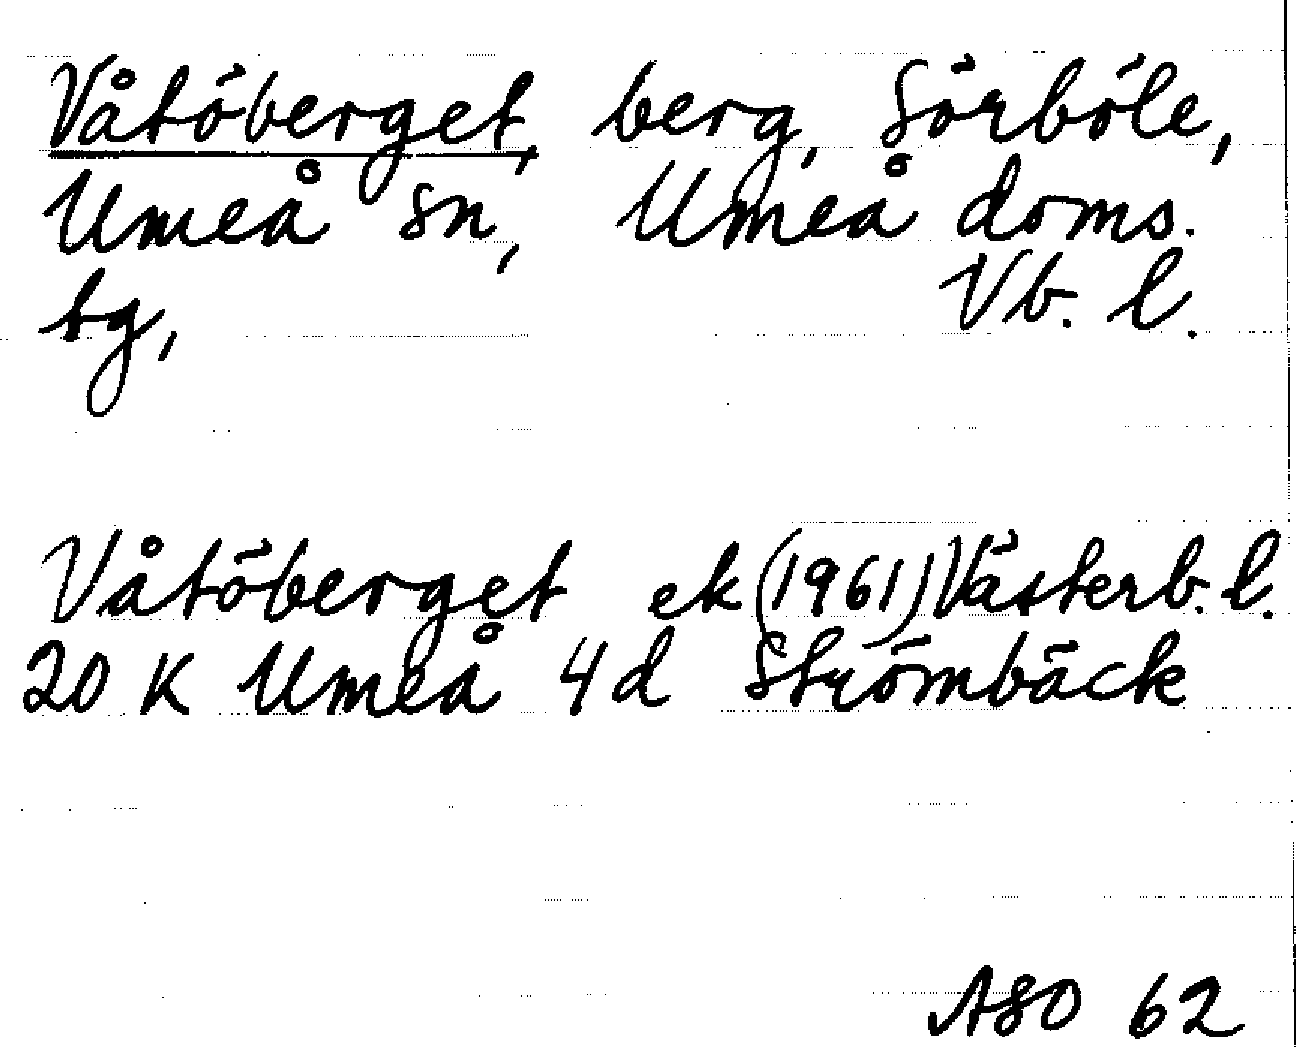 Våtöberget, berg, Sörböle,
Umeå sn, Umeå doms.
bg, Vb. l.
Våtöberget ek (1961) Västerb. l.
20 K Umeå 4d Strömbäck
ASO 62